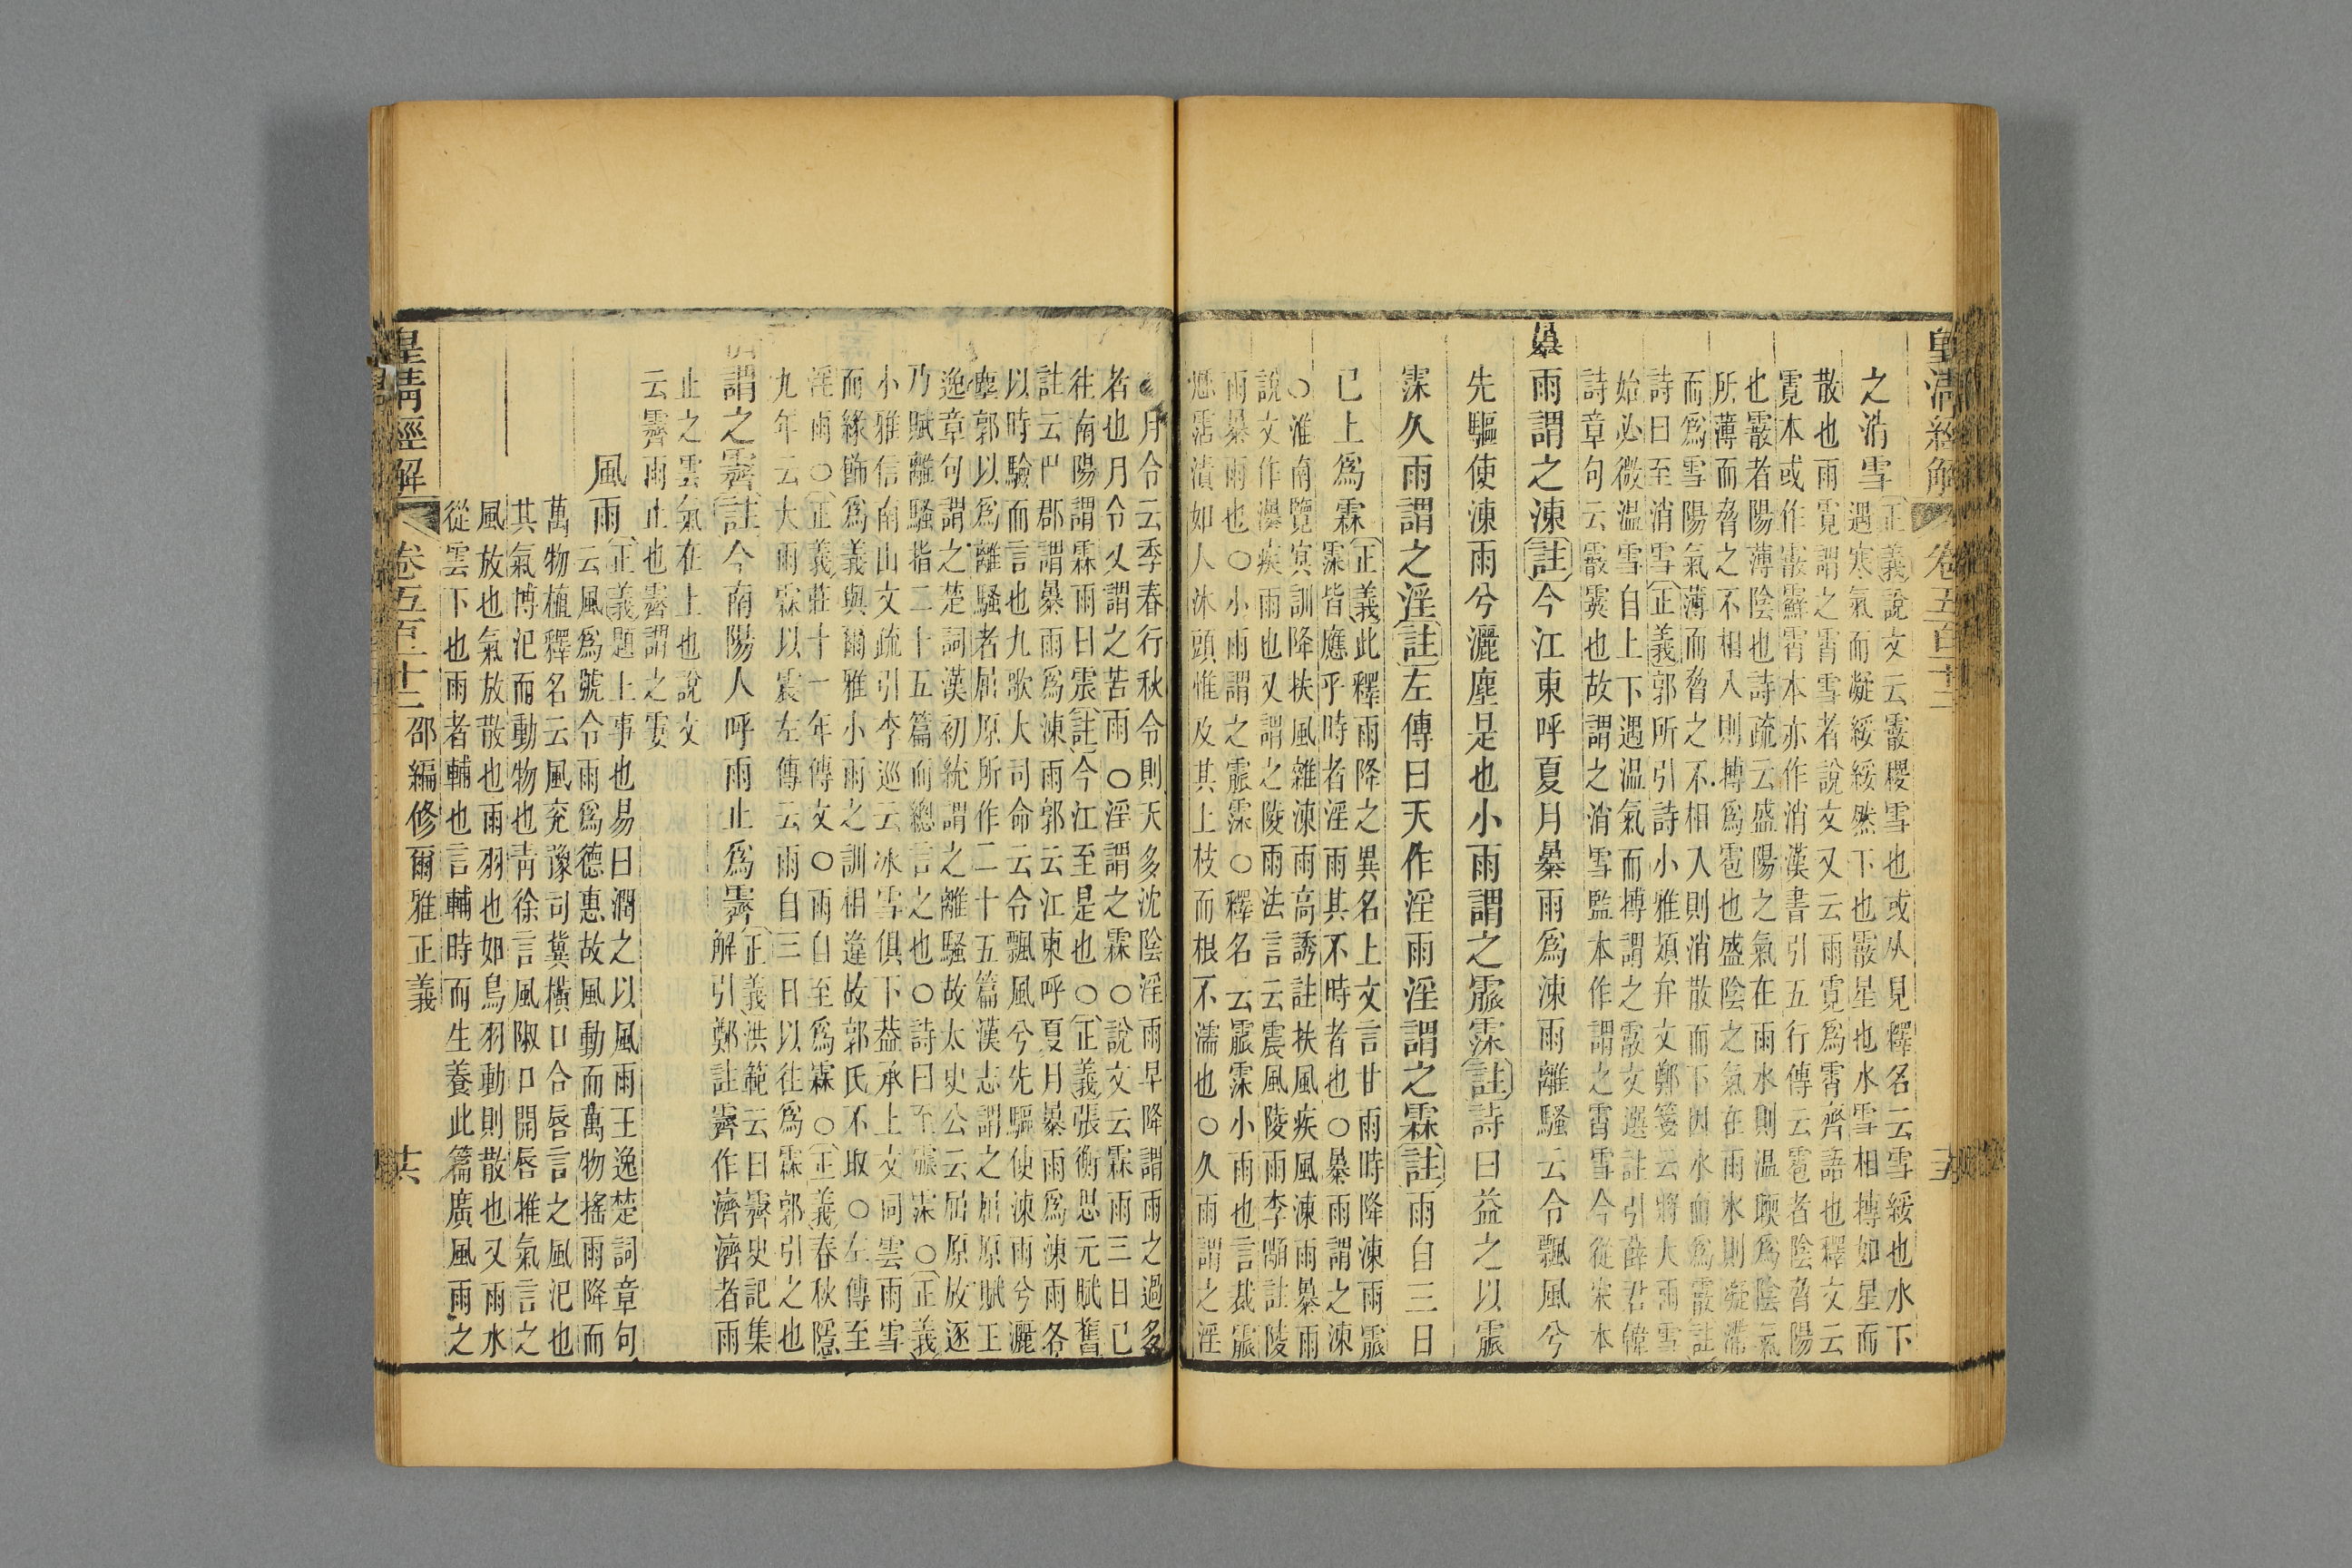 皇清經解 卷五百十二
之消雪
正義說文云霰稷雪也或从見釋名云雪綏也水下
遇寒氣而凝綏綏然下也霰星也水雪相摶如星而
散也雨霓謂之霄雪者說文又云雨霓爲霄齊語也釋文云
霓本或作霰霹霄本亦作消漢書引五行傳云雹者陰脅陽
也霰者陽薄陰也詩疏云盛陽之氣在雨水則温暖爲陰氣
所薄而脅之不相入則摶爲雹也盛陰之氣在雨水則凝滯
而爲雪陽氣薄而脅之不相入則消散而下因水而爲霰註
詩曰至消雪正義郭所引詩小雅頍弁文鄭箋云將大雨雪
始必微温雪自上下遇温氣而摶謂之霰文選註引薛君韓
詩章句云霰霙也故謂之消雪監本作謂之霄雪今從宋本
暴雨謂之涷註今江東呼夏月暴雨爲涷雨離騷云令飄風兮
先驅使涷雨兮灑塵是也小雨謂之霢霂註詩曰益之以霢
霂久雨謂之淫註左傳曰天作淫雨淫謂之霖註雨自三日
已上爲霖
正義此釋雨降之異名上文言甘雨時降涷雨霢
霂皆應乎時者淫雨其不時者也○暴雨謂之涷
○淮南覽冥訓降扶風雜涷雨高誘註扶風疾風涷雨暴雨
說文作瀑疾雨也又謂之陵雨法言云震風陵雨李顒註陵
雨暴雨也○小雨謂之霢霂○釋名云霢霂小雨也言裁霢
歷霑漬如人沐頭惟及其上枝而根不濡也○久雨謂之淫
○月令云季春行秋令則天多沈陰淫雨早降謂雨之過多
者也月令又謂之苦雨○淫謂之霖○說文云霖雨三日已
往南陽謂霖雨曰霃註今江至是也○正義張衡思元賦舊
註云巴郡謂暴雨爲涷雨郭云江東呼夏月暴雨爲涷雨各
以時驗而言也九歌大司命云令飄風兮先驅使涷雨兮灑
塵郭以爲離騷者屈原所作二十五篇漢志謂之屈原賦王
逸章句謂之楚詞漢初統謂之離騷故太史公云屈原放逐
乃賦離騷指二十五篇而總言之也○詩曰至霢霂○正義
小雅信南山文疏引李巡云冰雪俱下葢承上文同雲雨雪
而緣飾爲義與爾雅小雨之訓相違故郭氏不取○左傳至
淫雨○正義莊十一年傳文○雨自至爲霖○正義春秋隱
九年云大雨霖以震左傳云雨自三日以往爲霖郭引之也
謂之霽註今南陽人呼雨止爲霽
正義洪範云曰霽史記集
解引鄭註霽作濟濟者雨
止之雲氣在上也說文
云霽雨止也霽謂之霋
風雨
正義題上事也易曰潤之以風雨王逸楚詞章句
云風爲號令雨爲德惠故風動而萬物搖雨降而
萬物植釋名云風兗豫司冀橫口合唇言之風氾也
其氣博氾而動物也青徐言風踧口開唇推氣言之
風放也氣放散也雨羽也如鳥羽動則散也又雨水
從雲下也雨者輔也言輔時而生養此篇廣風雨之
皇清經解 卷五百十二 邵編修爾雅正義